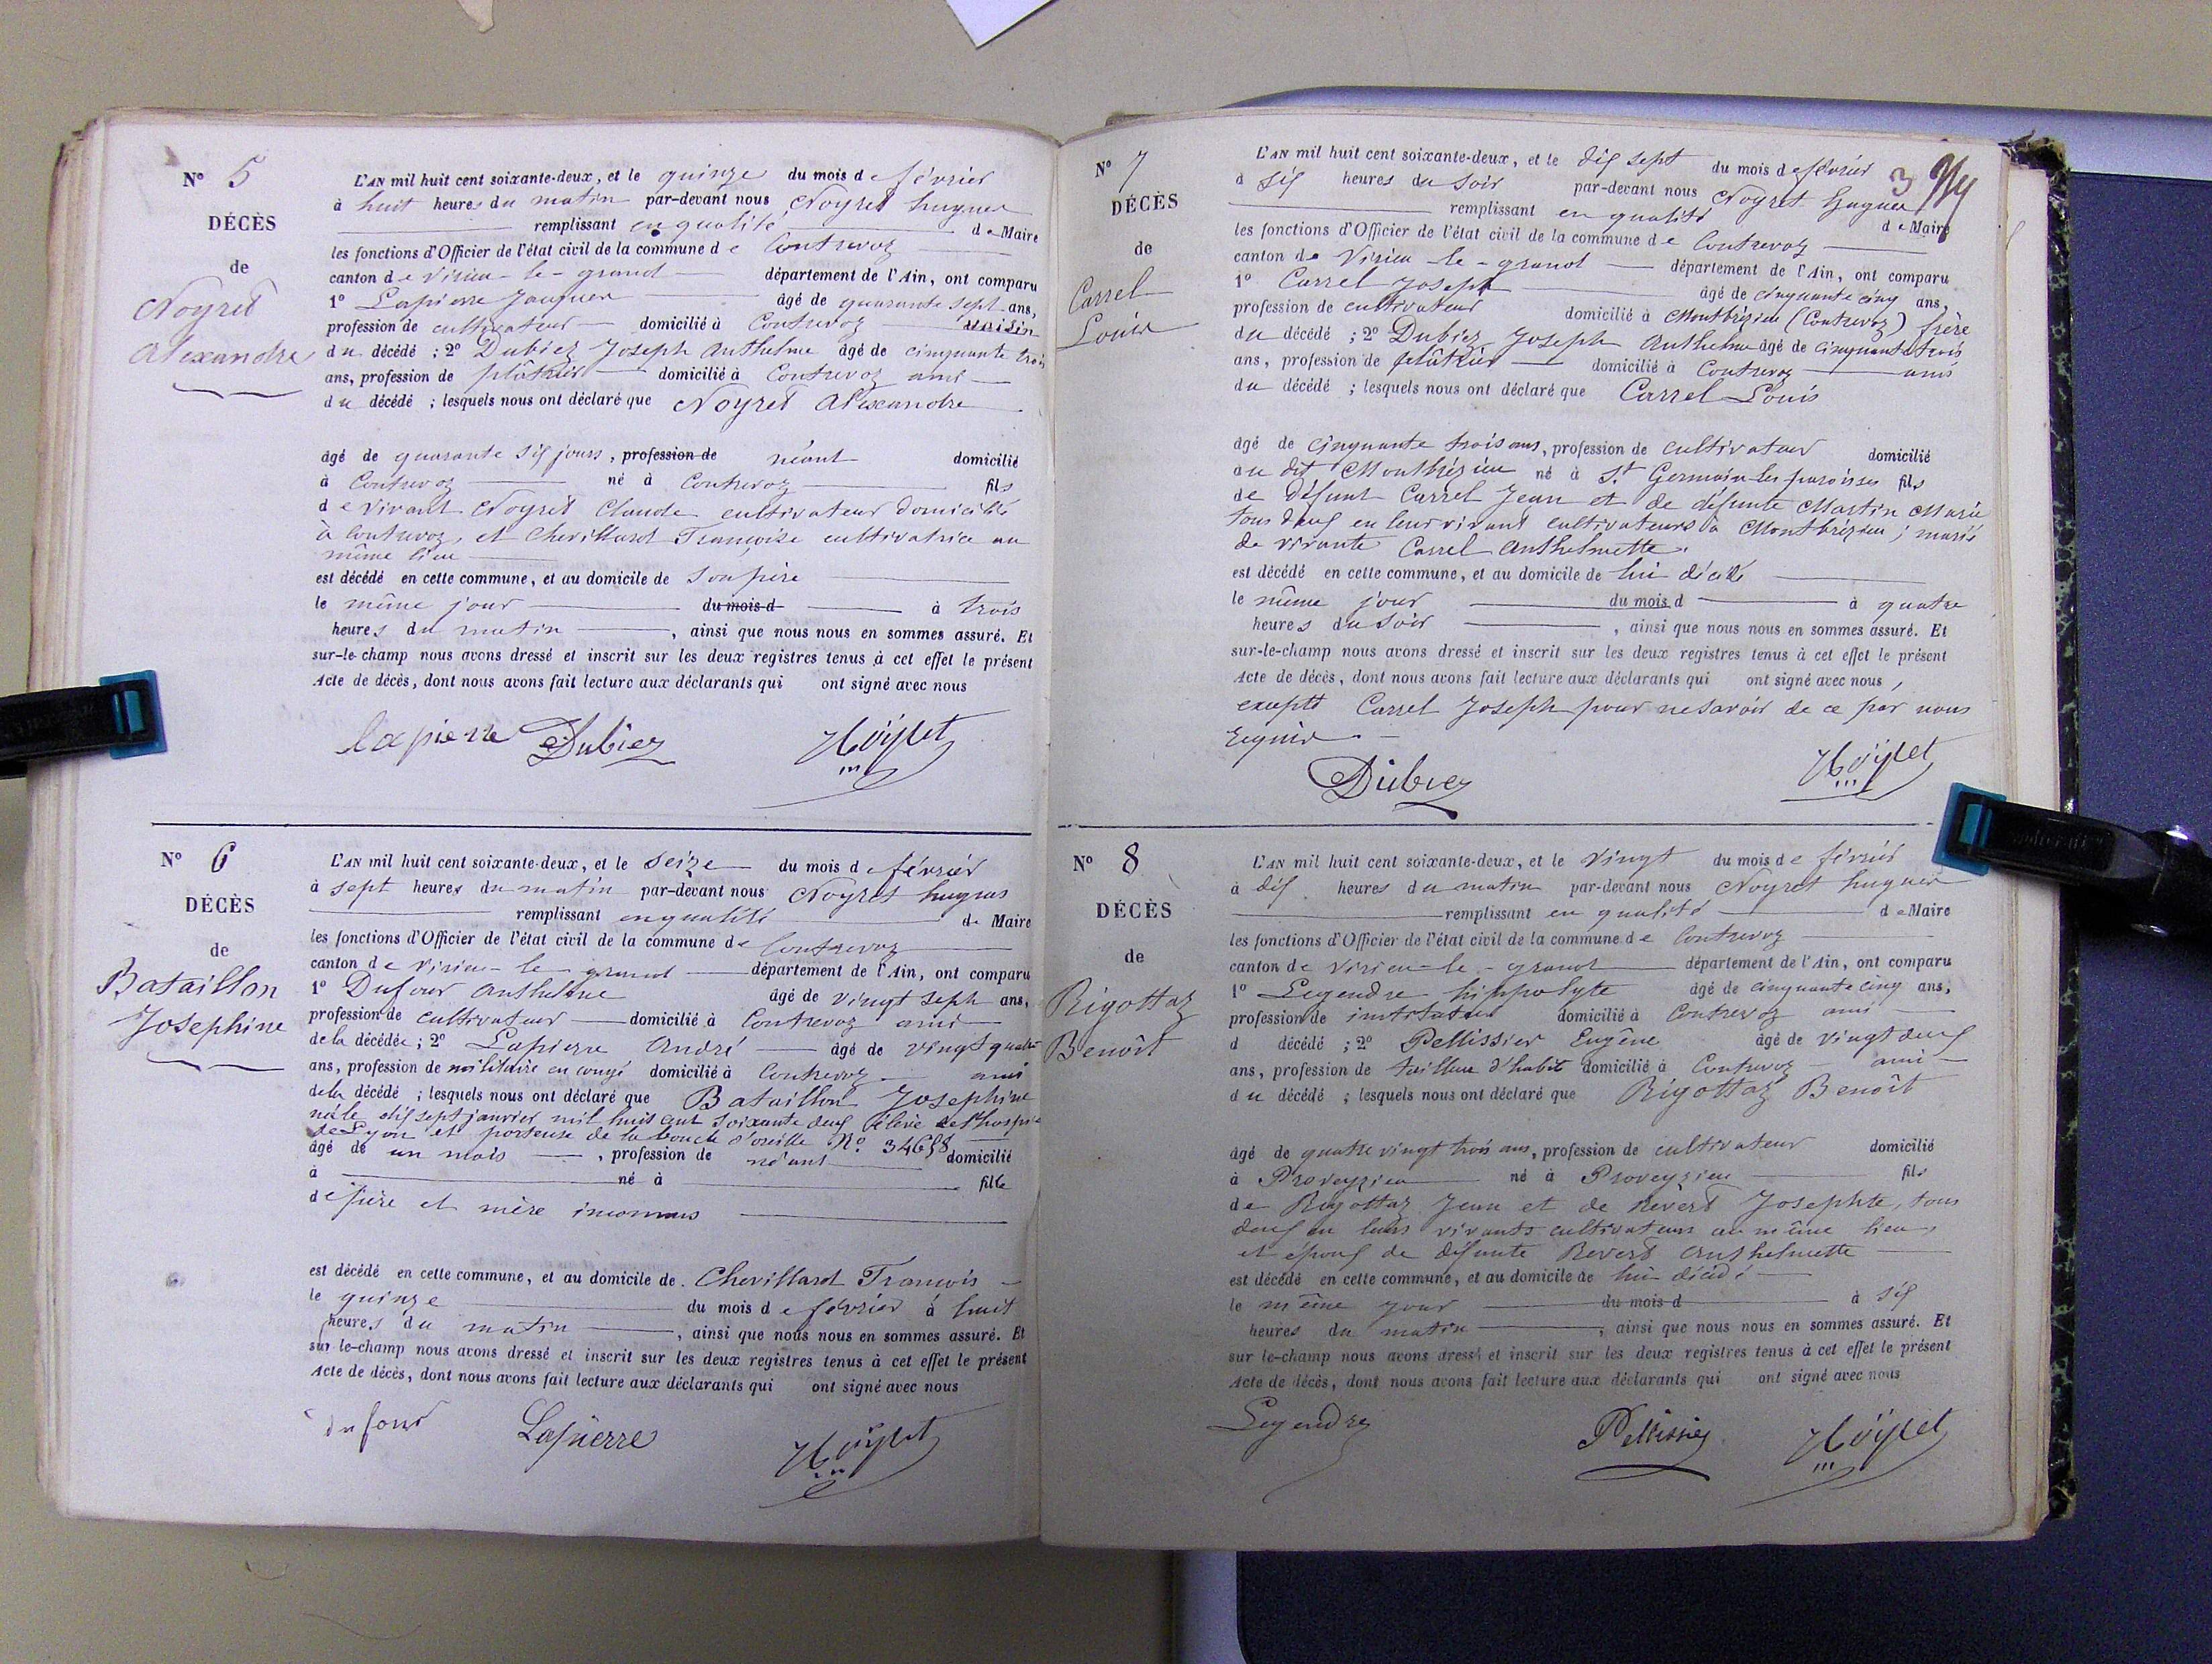 N° 5
DÉCÈS
de
Noyret
Alexandre
L'AN mil huit cent soixante-deux, et le quinze du mois de février
à huit heures du matin par-devant nous Noyret hugues
remplissant en qualité de Maire
les fonctions d'Officier de l'état civil de la commune de Contrevoz
canton de Virieu-le-grand département de l'Ain, ont comparu
1° Lapierre Jacques âgé de quarante sept ans,
profession de cultivateur domicilié à Contrevoz voisin
du décédé ; 2° Dubiez Joseph Anthelme âgé de cinquante trois
ans, profession de plâtrier domicilié à Contrevoz ami
du décédé ; lesquels nous ont déclaré que Noyret Alexandre
âgé de quarante six jours, profession de néant domicilié
à Contrevoz né à Contrevoz fils
de vivant Noyret Claude cultivateur domicilié
à Contrevoz, et Chevillard Françoise cultivatrice au
même lieu
est décédé en cette commune, et au domicile de son père
le même jour du mois d à trois
heures du matin, ainsi que nous nous en sommes assuré. Et
sur-le-champ nous avons dressé et inscrit sur les deux registres tenus à cet effet le présent
Acte de décès, dont nous avons fait lecture aux déclarants qui ont signé avec nous
lapierre Dubiez Noyret
N° 6
DÉCÈS
de
Bataillon
Josephine
L'AN mil huit cent soixante-deux, et le seize du mois de février
à sept heures du matin par-devant nous Noyret hugues
remplissant en qualité de Maire
les fonctions d'Officier de l'état civil de la commune de Contrevoz
canton de Virieu-le grand département de l'Ain, ont comparu
1° Dufour Anthelme âgé de vingt sept ans,
profession de cultivateur domicilié à Contrevoz ami
de la décédée ; 2° Lapierre André âgé de vingt quatre
ans, profession de militaire en congé domicilié à Contrevoz ami
de la décédé ; lesquels nous ont déclaré que Bataillon Josephine
née le dix sept janvier mil huit cent soixante deux élève de l'hospice
de Lyon et porteuse de la boucle d'oreille N° 34658
âgé de un mois, profession de néant domicilié
à né à fille
de père et mère inconnus
est décédé en cette commune, et au domicile de Chevillard François
le quinze du mois de février à huit
heures du matin, ainsi que nous nous en sommes assuré. Et
sur le-champ nous avons dressé et inscrit sur les deux registres tenus à cet effet le présent
Acte de décès, dont nous avons fait lecture aux déclarants qui ont signé avec nous
dufour Lapierre Noyret
N° 7
DÉCÈS
de
Carrel
Louis
3
L'AN mil huit cent soixante-deux, et le dix sept du mois de février
à six heures du soir par-devant nous Noyret hugues
remplissant en qualité de Maire
les fonctions d'Officier de l'état civil de la commune de Contrevoz
canton de Virieu-le-grand département de l'Ain, ont comparu
1° Carrel Joseph âgé de cinquante cinq ans,
profession de cultivateur domicilié à Montbrézieu (Contrevoz) frère
du décédé ; 2° Dubiez Joseph Anthelme âgé de cinquante trois
ans, profession de plâtrier domicilié à Contrevoz ami
du décédé ; lesquels nous ont déclaré que Carrel Louis
âgé de cinquante trois ans, profession de cultivateur domicilié
au dit Montbrézieu né à St Germain les paroisses fils
de défunt Carrel Jean et de défunte Martin Marie
tous deux en leur vivant cultivateurs à Montbrézieu ; marié
de vivante Carrel Anthelmette.
est décédé en cette commune, et au domicile de lui décédé
le même jour du mois d à quatre
heures du soir, ainsi que nous nous en sommes assuré. Et
sur-le-champ nous avons dressé et inscrit sur les deux registres tenus à cet effet le présent
Acte de décès, dont nous avons fait lecture aux déclarants qui ont signé avec nous,
excepté Carrel Joseph pour ne savoir de ce par nous
requis
Dubiez Noyret
N° 8
DÉCÈS
de
Rigottaz
Benoît
L'AN mil huit cent soixante-deux, et le vingt du mois de février
à dix heures du matin par-devant nous Noyret hugues
remplissant en qualité de Maire
les fonctions d'Officier de l'état civil de la commune de Contrevoz
canton de Virieu-le-grand département de l'Ain, ont comparu
1° Legendre hippolyte âgé de cinquante cinq ans,
profession de instituteur domicilié à Contrevoz ami
d décédé ; 2° Pellissier Eugêne âgé de vingt deux
ans, profession de tailleur d'habit domicilié à Contrevoz ami
du décédé ; lesquels nous ont déclaré que Rigottaz Benoît
âgé de quatre vingt trois ans, profession de cultivateur domicilié
à Proveyzieu né à Proveyzieu fils
de Rigottaz Jean et de Revert Josephte, tous
deux en leurs vivants cultivateurs au même lieu,
et époux de défunte Revert Anthelmette
est décédé en cette commune, et au domicile de lui décédé
le même jour du mois d à six
heures du matin, ainsi que nous nous en sommes assuré. Et
sur le-champ nous avons dressé et inscrit sur les deux registres tenus à cet effet le présent
Acte de décès, dont nous avons fait lecture aux déclarants qui ont signé avec nous
Legendre Pellissier Noyret